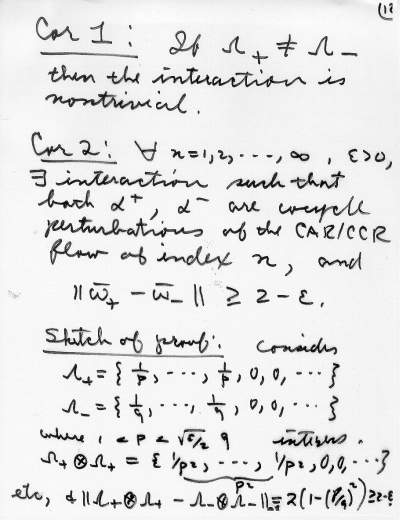 (12
Cor 1: If Λ₊ ≠ Λ₋
then the interaction is
nontrivial.
Cor 2: ∀ n=1,2,⋯,∞, ε>0,
∃ interaction such that
both α⁺, α⁻ are cocycle
perturbations of the CAR/CCR
flow of index n, and
‖ω̄₊ − ω̄₋‖ ≥ 2−ε.
Sketch of proof: consider
Λ₊ = {1/p, ⋯, 1/p, 0, 0, ⋯}
Λ₋ = {1/q, ⋯, 1/q, 0, 0, ⋯}
where 1 < p < √(ε/2) q integers.
Λ₊⊗Λ₊ = {1/p², ⋯, 1/p², 0, 0, ⋯}
p²
etc, & ‖Λ₊⊗Λ₊ − Λ₋⊗Λ₋‖ = 2(1−(p/q)²) ≥ 2−ε